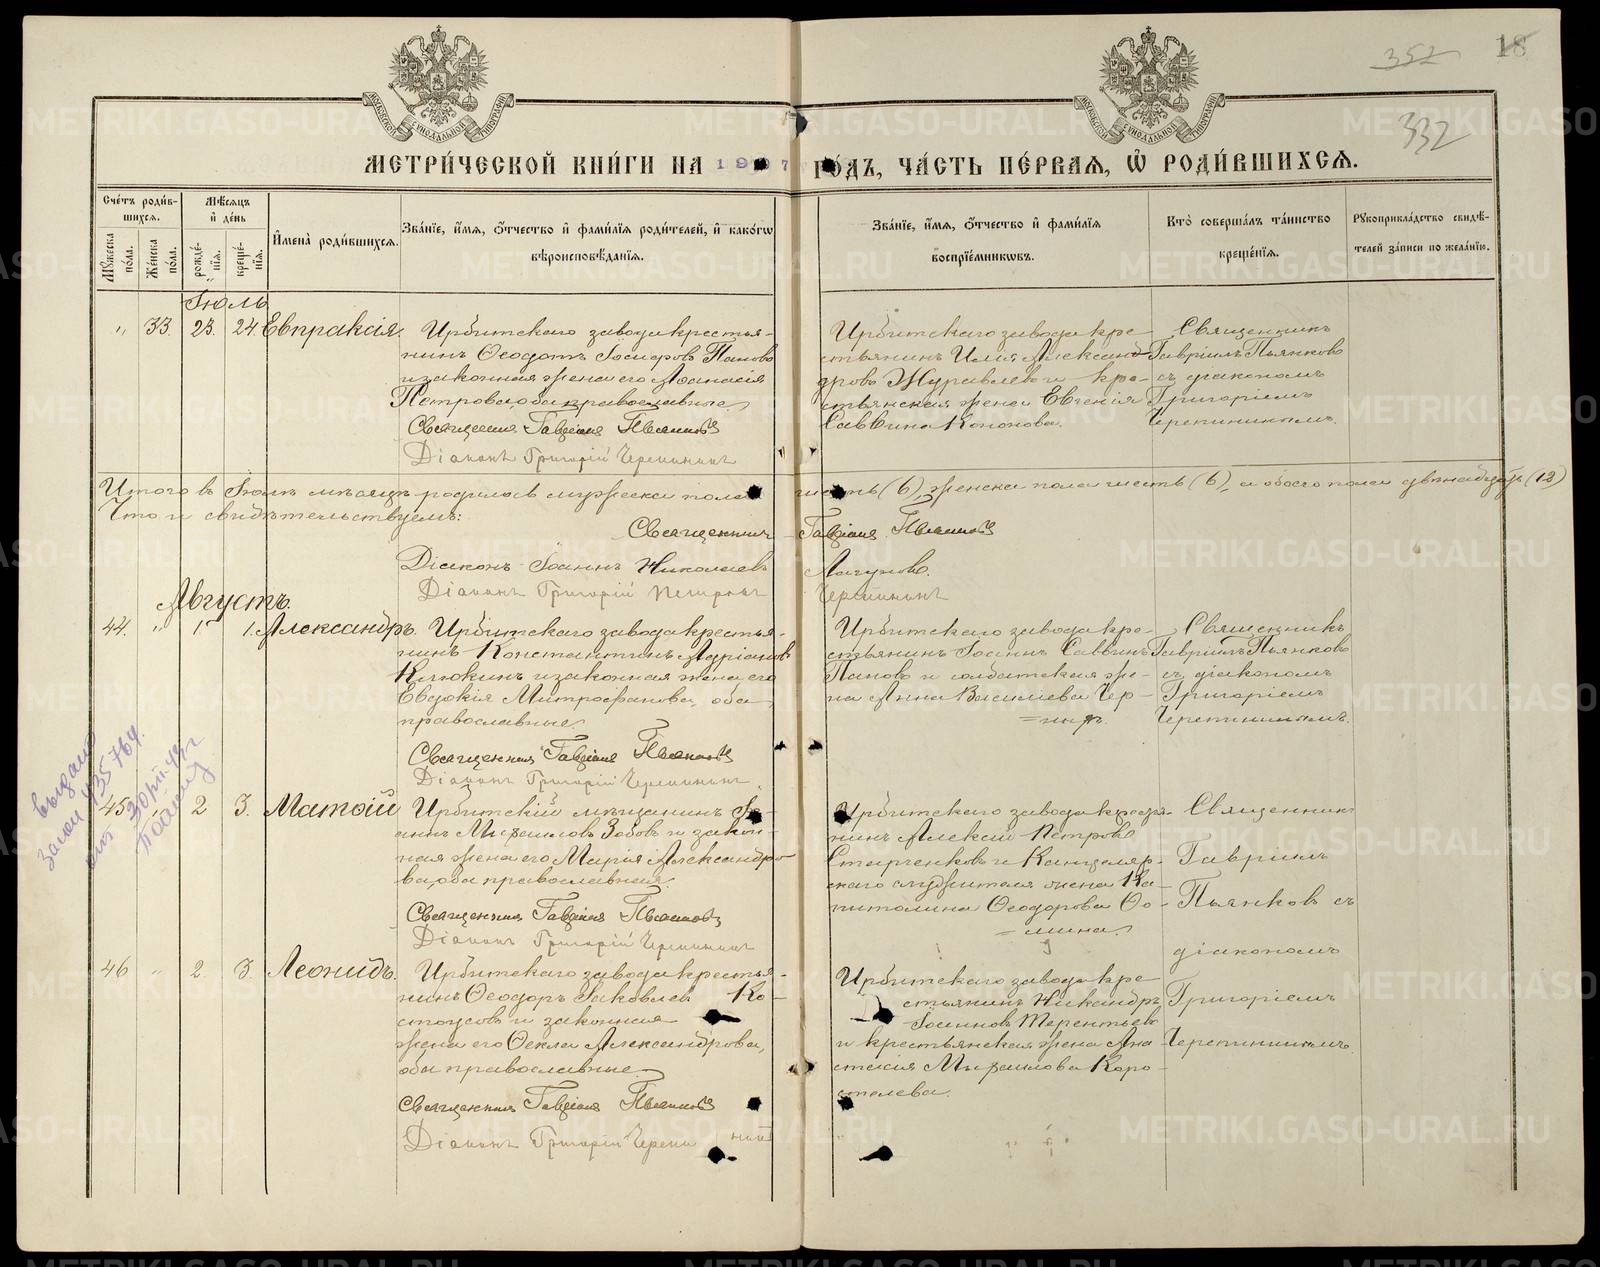 352
18
332
МОСКОВСКОЙ СИНОДАЛЬНОЙ ТИПОГРАФІИ
МОСКОВСКОЙ СИНОДАЛЬНОЙ ТИПОГРАФІИ
МЕТРИ́ЧЕСКОЙ КНИ́ГИ НА 1907 ГО́ДЪ, ЧА́СТЬ ПЕ́РВАЯ, Ѡ҆ РОДИ́ВШИХСЯ.
Сче́тъ роди́в-
шихся.
Мѣ́сяцъ
и҆ де́нь
Му́жеска
по́ла.
Же́нска
по́ла.
рожде́-
нїя.
креще́-
нїя.
И҆мена̀ роди́вшихся.
Зва́нїе, и҆́мя, ѻ҆́тчество и҆ фами́лїя роди́телей, и҆ како́гѡ
вѣроисповѣ́данїя.
Зва́нїе, и҆́мя, ѻ҆́тчество и҆ фами́лїя
воспрїе́мникѡвъ.
Кто̀ соверша́лъ та́инство
креще́нїя.
Рꙋкоприкла́дство свидѣ́-
телей за́писи по жела́нїю.
Іюль
" 33. 23. 24. Евпраксія.
Ирбитскаго завода крестья-
нинъ Ѳеодотъ Пановъ
и законная жена его Аѳанасія
Петрова, оба православные.
Священник Гавріил Пьянков
Діаконъ Григорій Черепанинъ
Ирбитскаго завода кре-
стьянинъ Илія Александ-
ровъ Журавлевъ и кре-
стьянская жена Евгенія
Саввина Кононова.
Священникъ
Гавріилъ Пьянковъ
съ діакономъ
Григоріемъ
Черепанинымъ.
Итого въ Іюлѣ мѣсяцѣ родилось мужеска пола шесть (6), женска пола шесть (6), а обоего пола двенадцать (12)
Что и свидѣтельствуемъ:
Священник Гавріил Пьянков
Діаконъ Іоаннъ Николаевъ Лагуновъ.
Діаконъ Григорій Петровъ Черепанинъ
Августъ.
44. " 1 1. Александръ.
Ирбитскаго завода крестья-
нинъ Константинъ Адріановъ
Клюкинъ и законная жена его
Евдокія Митрофанова, оба
православные
Священник Гавріил Пьянков
Діаконъ Григорій Черепанинъ
Ирбитскаго завода кре-
стьянинъ Іоаннъ Саввинъ
Пановъ и солдатская же-
на Анна Василіева Чер-
ныхъ.
Священникъ
Гавріилъ Пьянковъ
съ діакономъ
Григоріемъ
Черепанинымъ.
выдано
45 " 2 3. Матѳій
Ирбитскій мѣщанинъ Іо-
аннъ Михаиловъ Зобовъ и закон-
ная жена его Марія Александро-
ва, оба православные.
Священник Гавріил Пьянков
Діаконъ Григорій Черепанинъ
Ирбитскаго завода крестья-
нинъ Алексій Петровъ
Старченковъ и Канцеляр-
скаго служителя жена Ка-
питолина Ѳеодорова Ѳо-
мина
Священникъ
Гавріилъ
Пьянковъ съ
діакономъ
Григоріемъ
Черепанинымъ.
46 " 2 3 Леонидъ.
Ирбитскаго завода крестья-
нинъ Ѳеодоръ Іаковлевъ Ко-
стоусовъ и законная
жена его Ѳекла Александрова,
оба православные.
Священник Гавріил Пьянков
Діаконъ Григорій Черепанинъ
Ирбитскаго завода кре-
стьянинъ Никандръ
Іоанновъ Терентьевъ
и крестьянская жена Ана-
стасія Михаилова Коро-
стелева.
METRIKI.GASO-URAL.RU